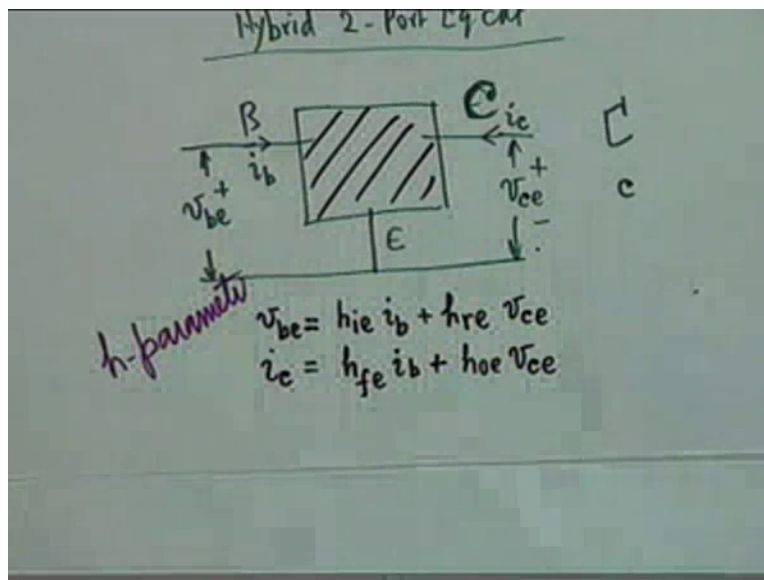 Hybrid 2-Port Eq Ckt
B
C
ic
C
ib
+
vbe
+
vce
-
c
E
h-paramete
vbe = hie ib + hre vce
ic = hfe ib + hoe vce